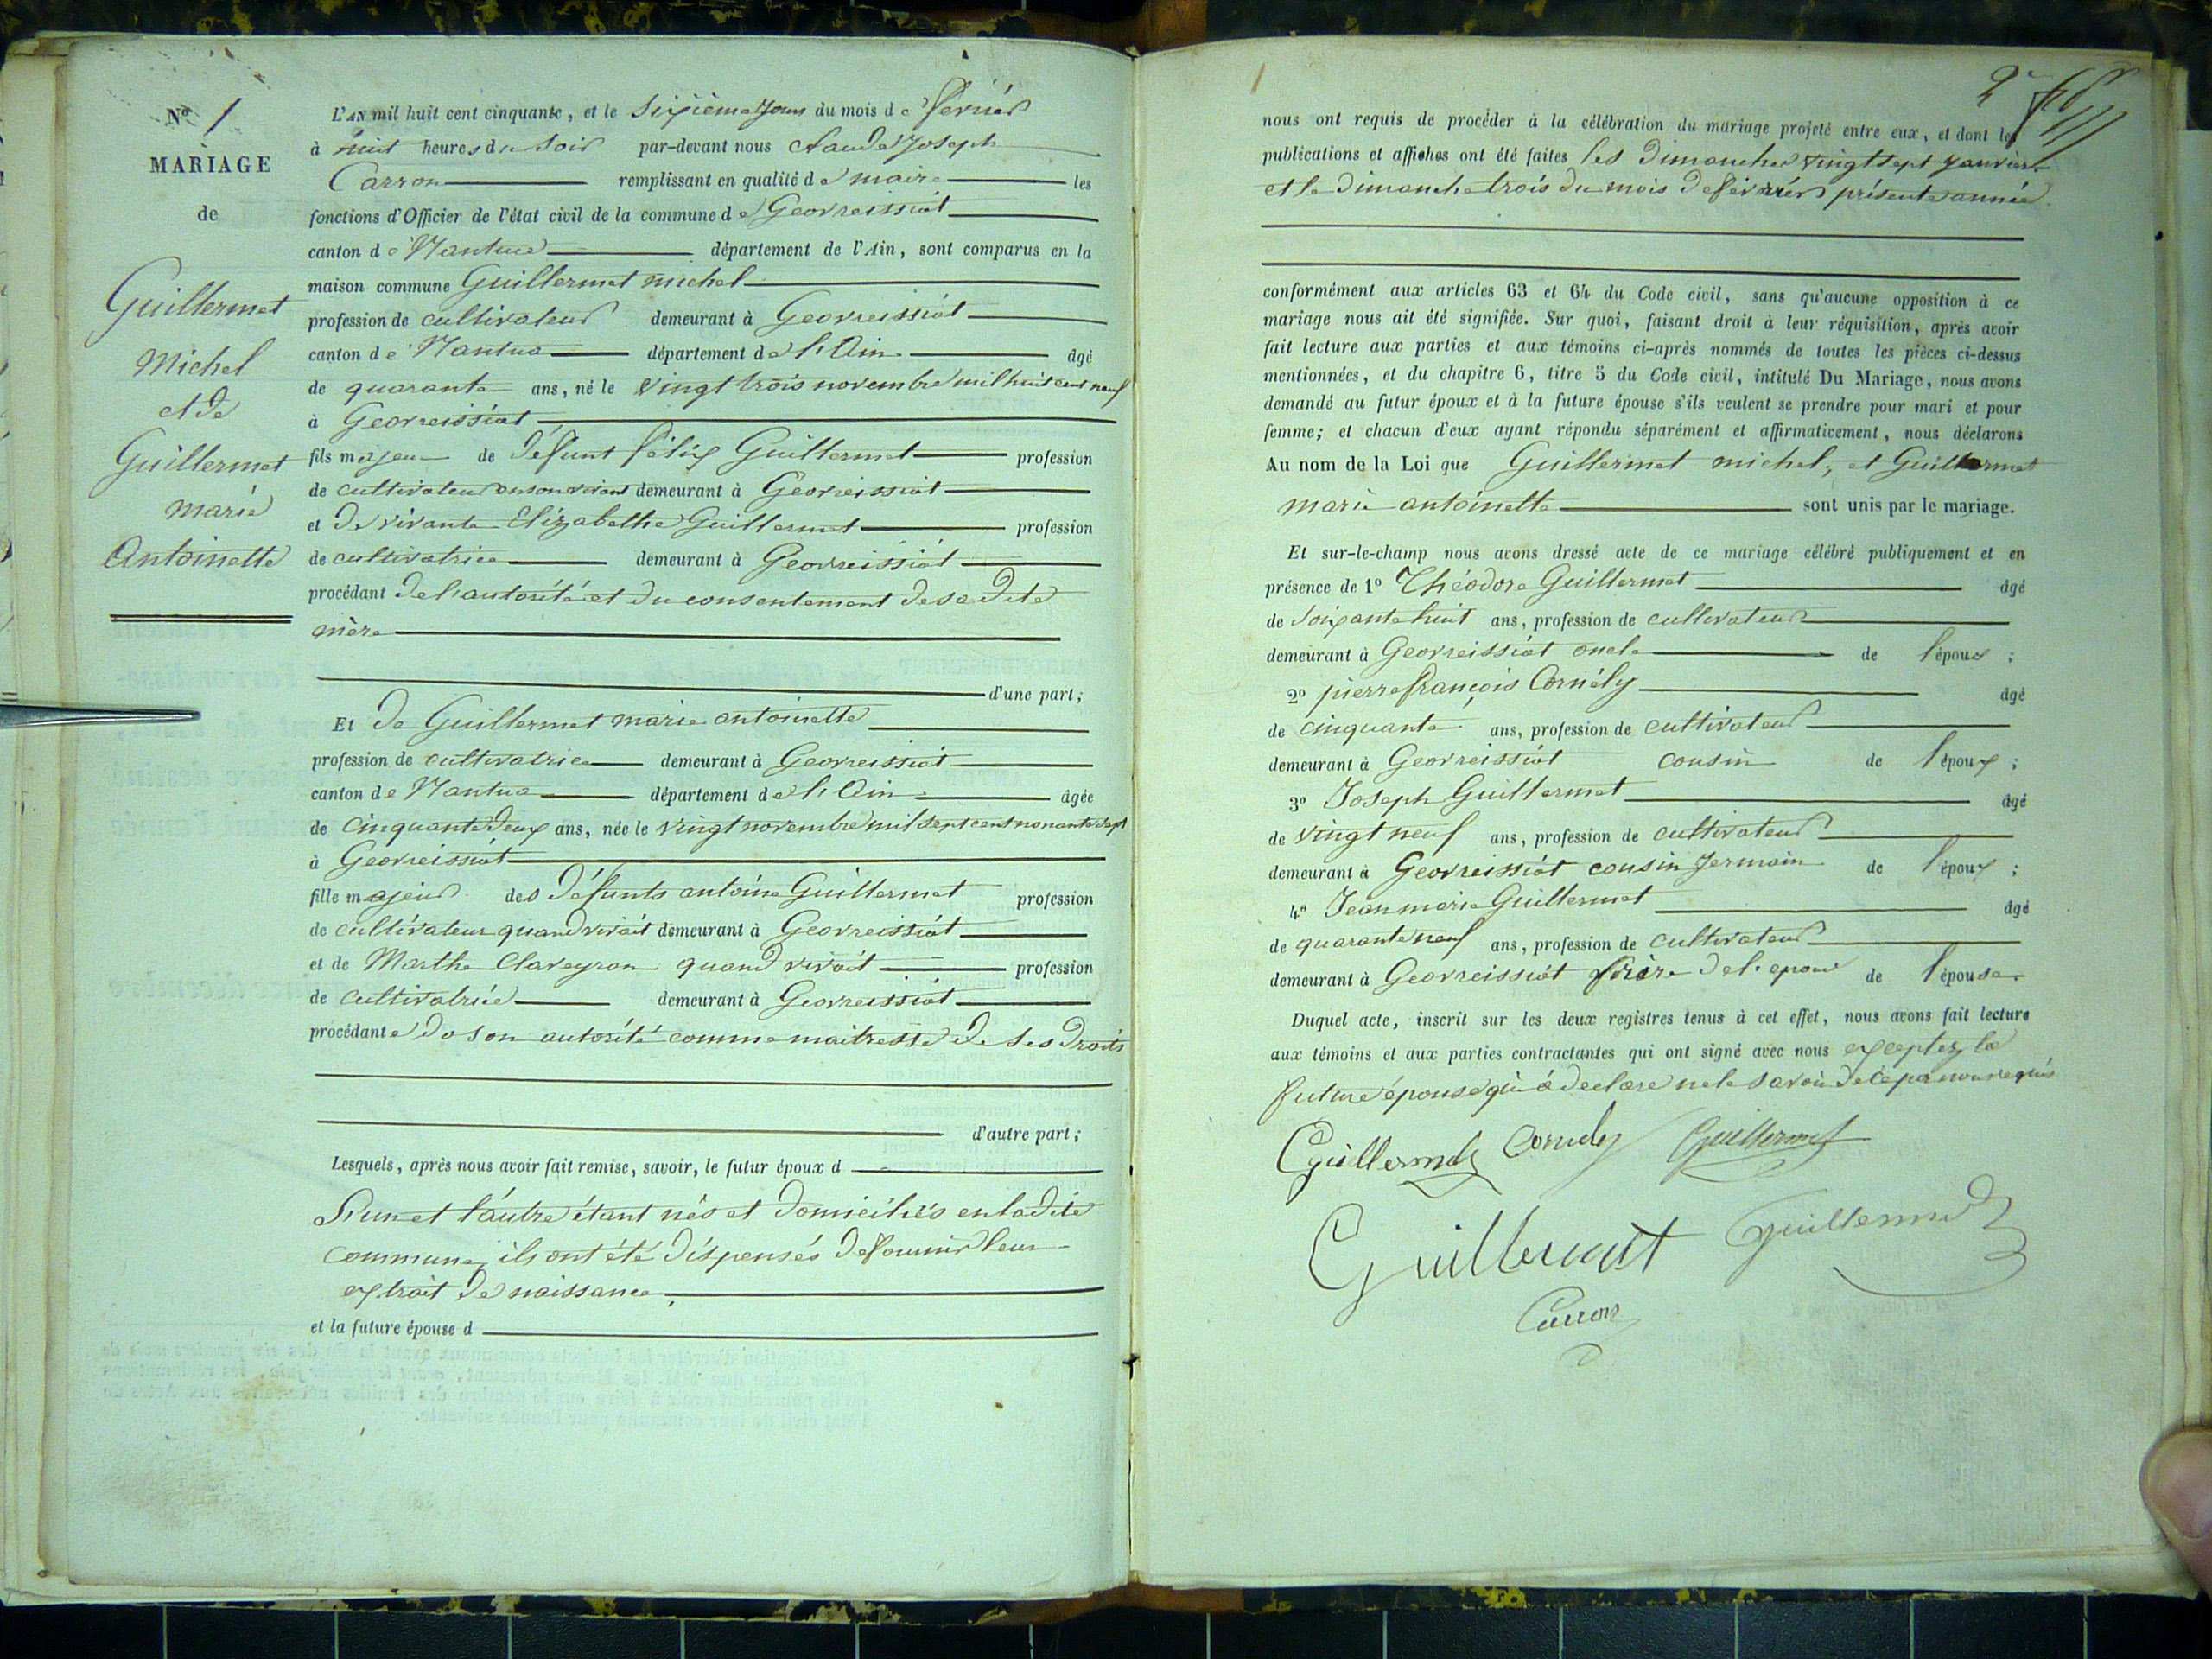 No 1
MARIAGE
de
Guillermet
Michel
et de
Guillermet
marie
Antoinette
L'AN mil huit cent cinquante, et le sixième Jour du mois de fevrier
à huit heures du Soir par-devant nous Claude Joseph
Carron remplissant en qualité de maire les
fonctions d'Officier de l'état civil de la commune de Geovreissiat
canton de Nantua département de l'Ain, sont comparus en la
maison commune Guillermet michel
profession de cultivateur demeurant à Geovreissiat
canton de Nantua département de l'Ain âgé
de quarante ans, né le vingt trois novembre mil huit cent neuf
à Geovreissiat
fils majeur de défunt félix Guillermet profession
de cultivateur en son vivant demeurant à Geovreissiat
et de vivante Elizabethe Guillermet profession
de cultivatrice demeurant à Geovreissiat
procédant de l'autorité et du consentement de sa dite
mère
d'une part;
Et de Guillermet marie antoinette
profession de cultivatrice demeurant à Geovreissiat
canton de Nantua département de l'Ain âgée
de cinquante deux ans, née le vingt novembre mil sept cent nonante sept
à Geovreissiat
fille majeur des défunts antoine Guillermet profession
de cultivateur quand vivait demeurant à Geovreissiat
et de Marthe Claveyron quand vivait profession
de cultivatrice demeurant à Geovreissiat
procédante de son autorité comme maitresse de ses droits
d'autre part;
Lesquels, après nous avoir fait remise, savoir, le futur époux d
L'un et l'autre étant nés et domiciliés en ladite
commune, ils ont été dispensés de fournir leur
extrait de naissance
et la future épouse d
2
nous ont requis de procéder à la célébration du mariage projeté entre eux, et dont les
publications et affiches ont été faites les dimanches vingt sept Janvier
et le dimanche trois du mois de février présente année
conformément aux articles 63 et 64 du Code civil, sans qu'aucune opposition à ce
mariage nous ait été signifiée. Sur quoi, faisant droit à leur réquisition, après avoir
fait lecture aux parties et aux témoins ci-après nommés de toutes les pièces ci-dessus
mentionnées, et du chapitre 6, titre 5 du Code civil, intitulé Du Mariage, nous avons
demandé au futur époux et à la future épouse s'ils veulent se prendre pour mari et pour
femme; et chacun d'eux ayant répondu séparément et affirmativement, nous déclarons
Au nom de la Loi que Guillermet michel, et Guillermet
marie antoinette sont unis par le mariage.
Et sur-le-champ nous avons dressé acte de ce mariage célébré publiquement et en
présence de 1º Théodore Guillermet âgé
de soixante huit ans, profession de cultivateur
demeurant à Geovreissiat oncle de l'époux ;
2º pierre françois Cornély âgé
de cinquante ans, profession de cultivateur
demeurant à Geovreissiat cousin de l'époux ;
3º Joseph Guillermet âgé
de vingt neuf ans, profession de cultivateur
demeurant à Geovreissiat cousin Jermain de l'époux ;
4º Jean marie Guillermet âgé
de quarante neuf ans, profession de cultivateur
demeurant à Geovreissiat frère de l'epouse de l'épouse
Duquel acte, inscrit sur les deux registres tenus à cet effet, nous avons fait lecture
aux témoins et aux parties contractantes qui ont signé avec nous exceptez la
future épouse qui á declare ne le savoir de ce par nous requis
Guillermet Cornely Guillermet
Guillermet Guillermet
Carron